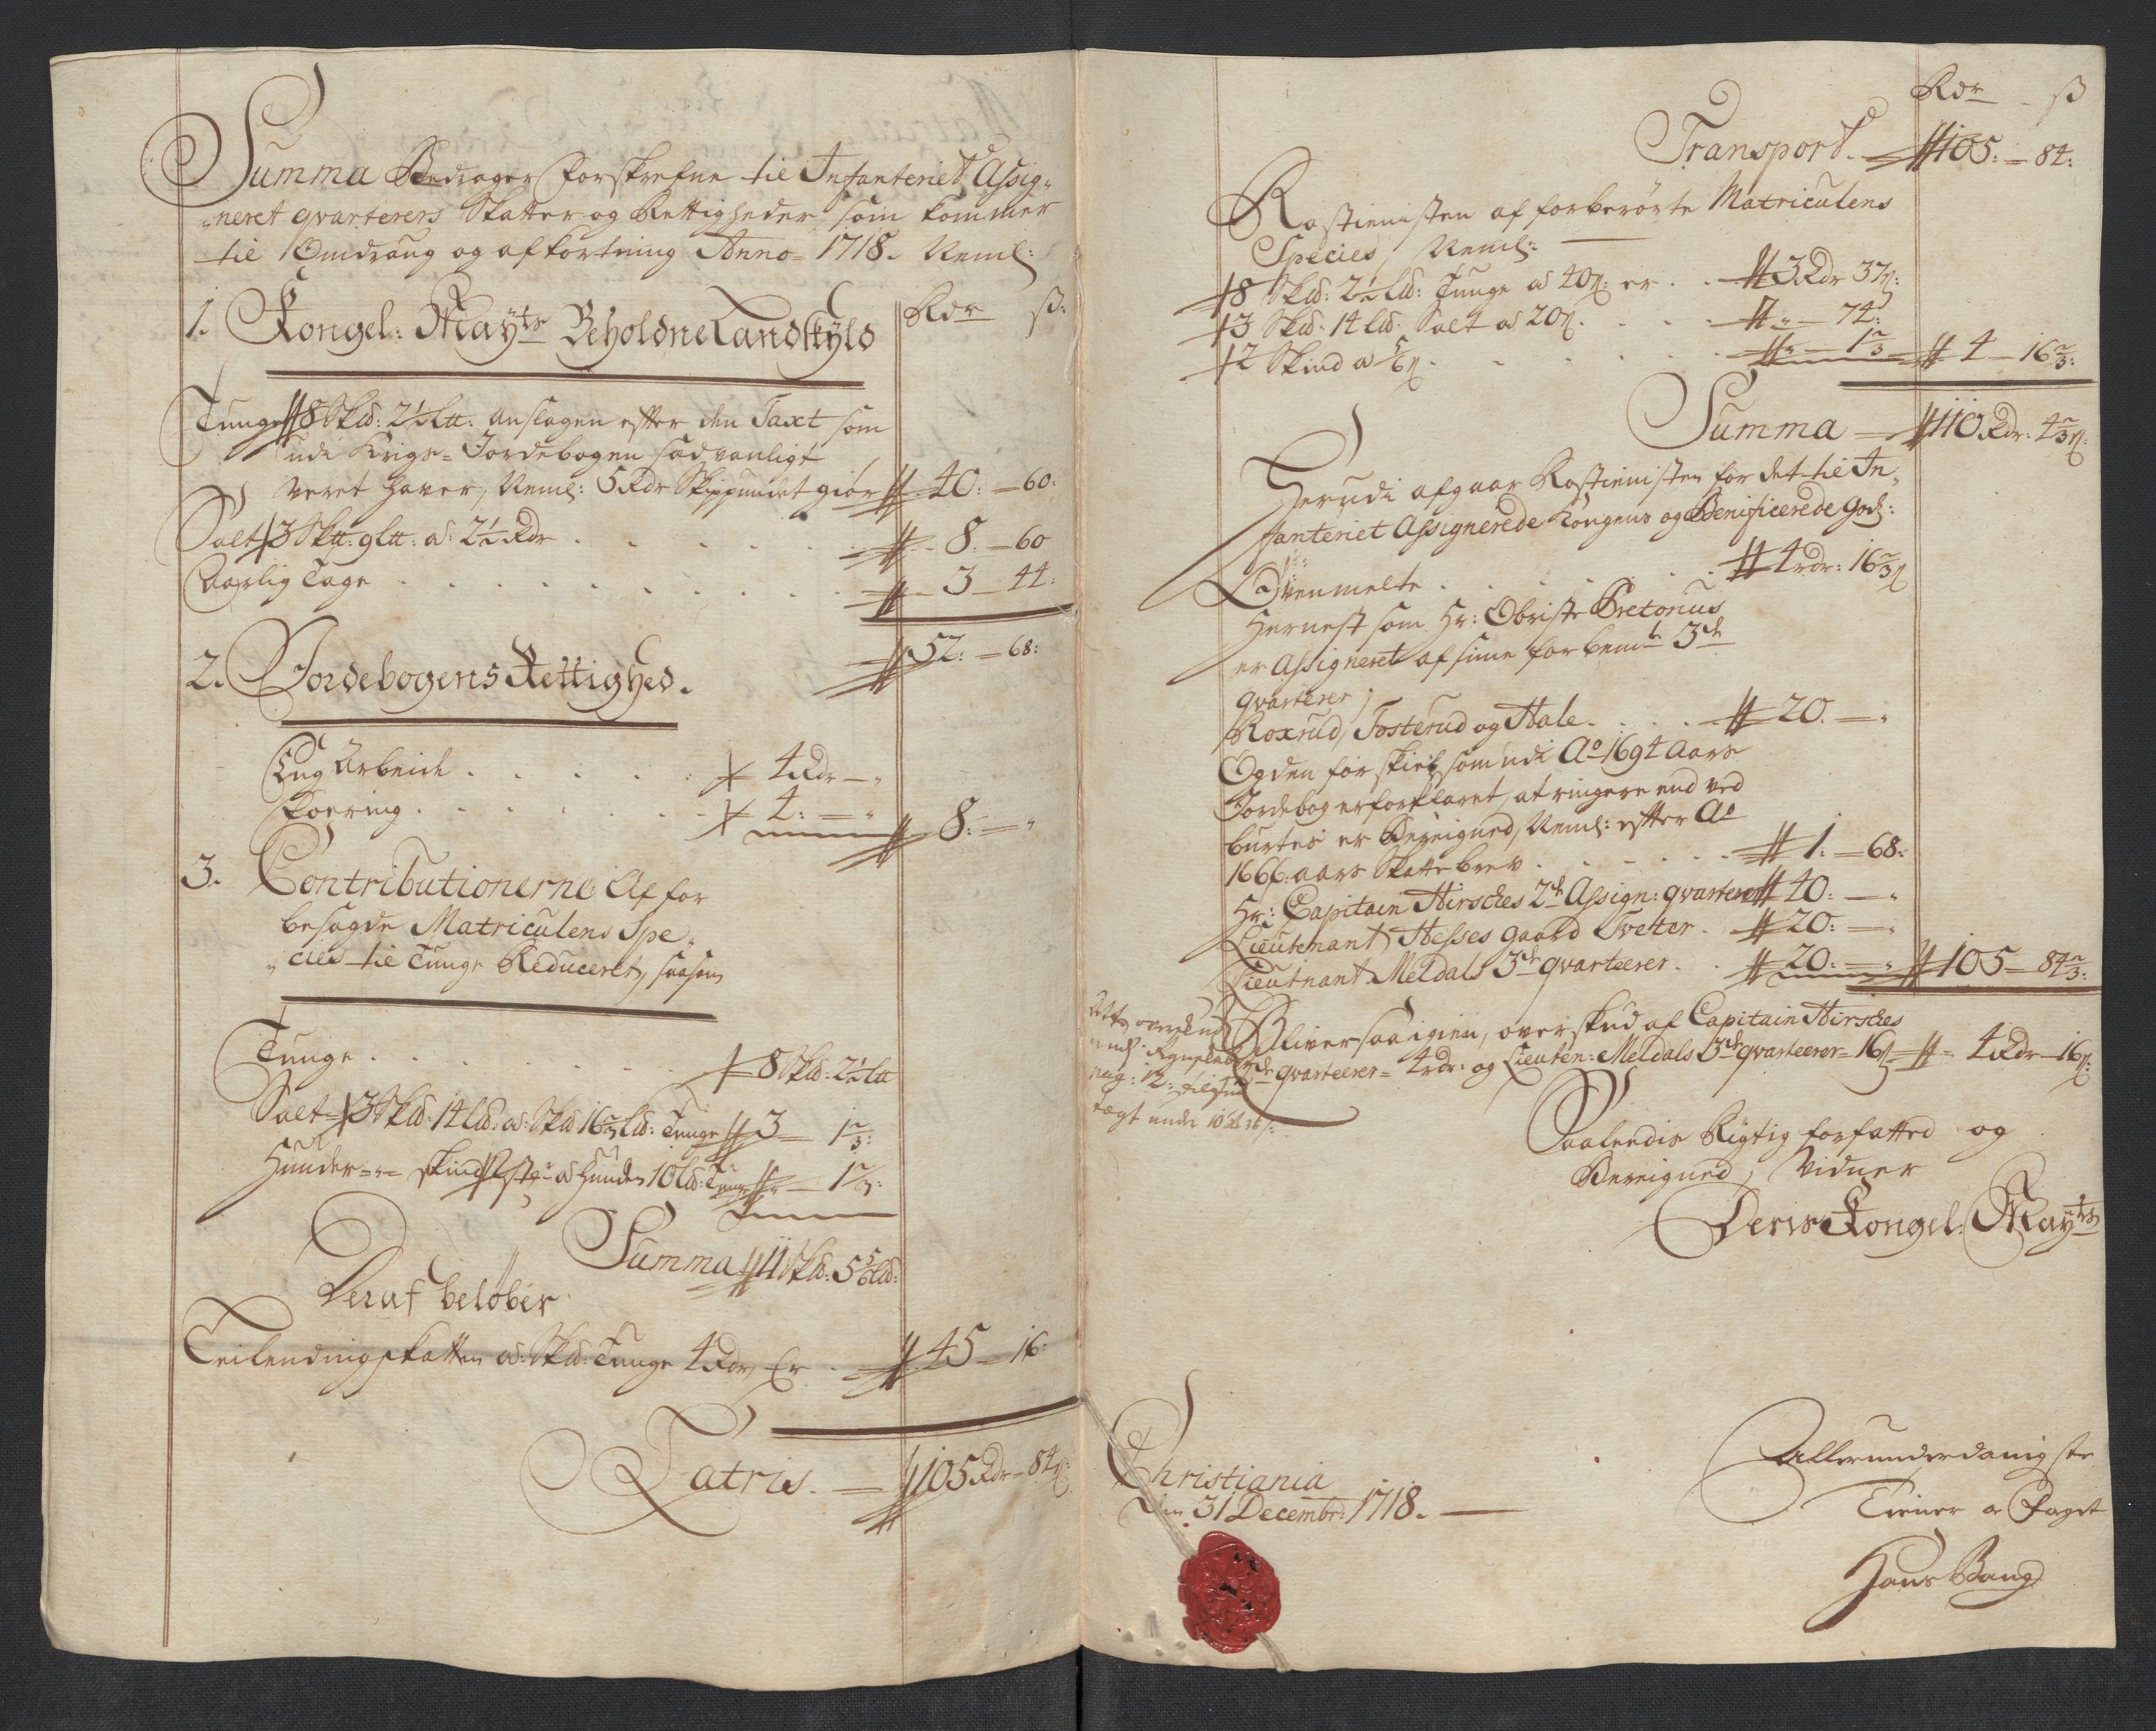 Summa Bedrager forskrefne til Infanteriet Assig-
neret qvarterers Skatter og Rettigheder som kommer
til Omdraug og afkortning Anno 1718. Neml:
1. Kongel: Mayts Beholdne Landskyld Rdr ß:
Tunge 8 Skd: 2½ Ltt: anslagen efter den Taxt som
udi Krigs-Jordebogen sædvanligt
veret haver, Neml: 5 Rdr Skippundet giør 40: - 60:
Salt 3 Sktt: 9 Ltt: a: 2½ Rdr . . . 8. - 60
Aarlig Tage . . . 3 - 44:
52: - 68:
2. Jordebogens Rettighed.
Leng Arbeide . . . 4 Rdr - "
Kiøering . . . 4: - " 8: - "
3. Contributionerne Af for
besagde Matriculens Spe-
cies til Tunge Reduceret, saasom
Tunge . . . 8 Skd: 2½ Ltt
Salt 3 Skd: 14 Ld: a: Skd 16⅔ Ld: Tunge 3 - 1⅔:
Hunder skind a Hunder 10 Ld: Tunge " - 1⅔:
Summa 11 Skd: 5⅚ Ld:
Deraf beløber
Leilendingskatten a: Skd: Tunge 4 Rdr Er . 45 - 16:
Latris. 105 Rdr - 84 ß:
Rdr ß
Transport. 105: - 84:
Rostienisten af forberørte Matriculens
Species, Neml:
8 Skd: 2½ Ld: Tunge a 40 ß: er . . 3 Rdr 37 ß:
3 Skd: 14 Ld: Salt a 20 ß. . . . " - 74:
2 Skind a ⅚ ß. . . . " - 1⅔ 4 - 16⅔:
Summa 110 Rdr: 4⅔ ß:
Herudi afgaar Rostienisten for det til In-
fanteriet Assignerede Kongens og Benificerede Gods:
Ovenmelte . . . 4 rdr: 16⅔ ß
Hernest som Hr: Obriste Pretorius
er Assigneret af sine forbemte 3de
qvarterer,
Roxrud, Fosterud og Hale. . . . 20. - "
Og den forskiel som udi Ao 1694 Aars
Jordebog er forklaret, at ringere end ved
burtes er Bereigned, Neml: efter Ao
1666: aars Skattebrev . . . 1: - 68:
Hr: Capitain Hirsches 2de Assign: qvarterer 40: - "
Lieutenant Hesses gaard Tveter. 20: - "
Lieutnant Meldals 3de qvarteerer. . 20: - " 105 - 84⅔:
Bliver saa igien, overskud af Capitain Hirsches
2de qvarteerer - 4 rdr: og Lieuten: Meldals 3de qvarteerer - 16 ß 4 Rdr - 16 ß:
Saaledis Rigtig forfatted og
Bereigned, Vidner
Deris Kongel: Mayts
Christiania
den 31 Decembr: 1718.
Allerunderdanigste
Tiener og Foget
Hans Bang